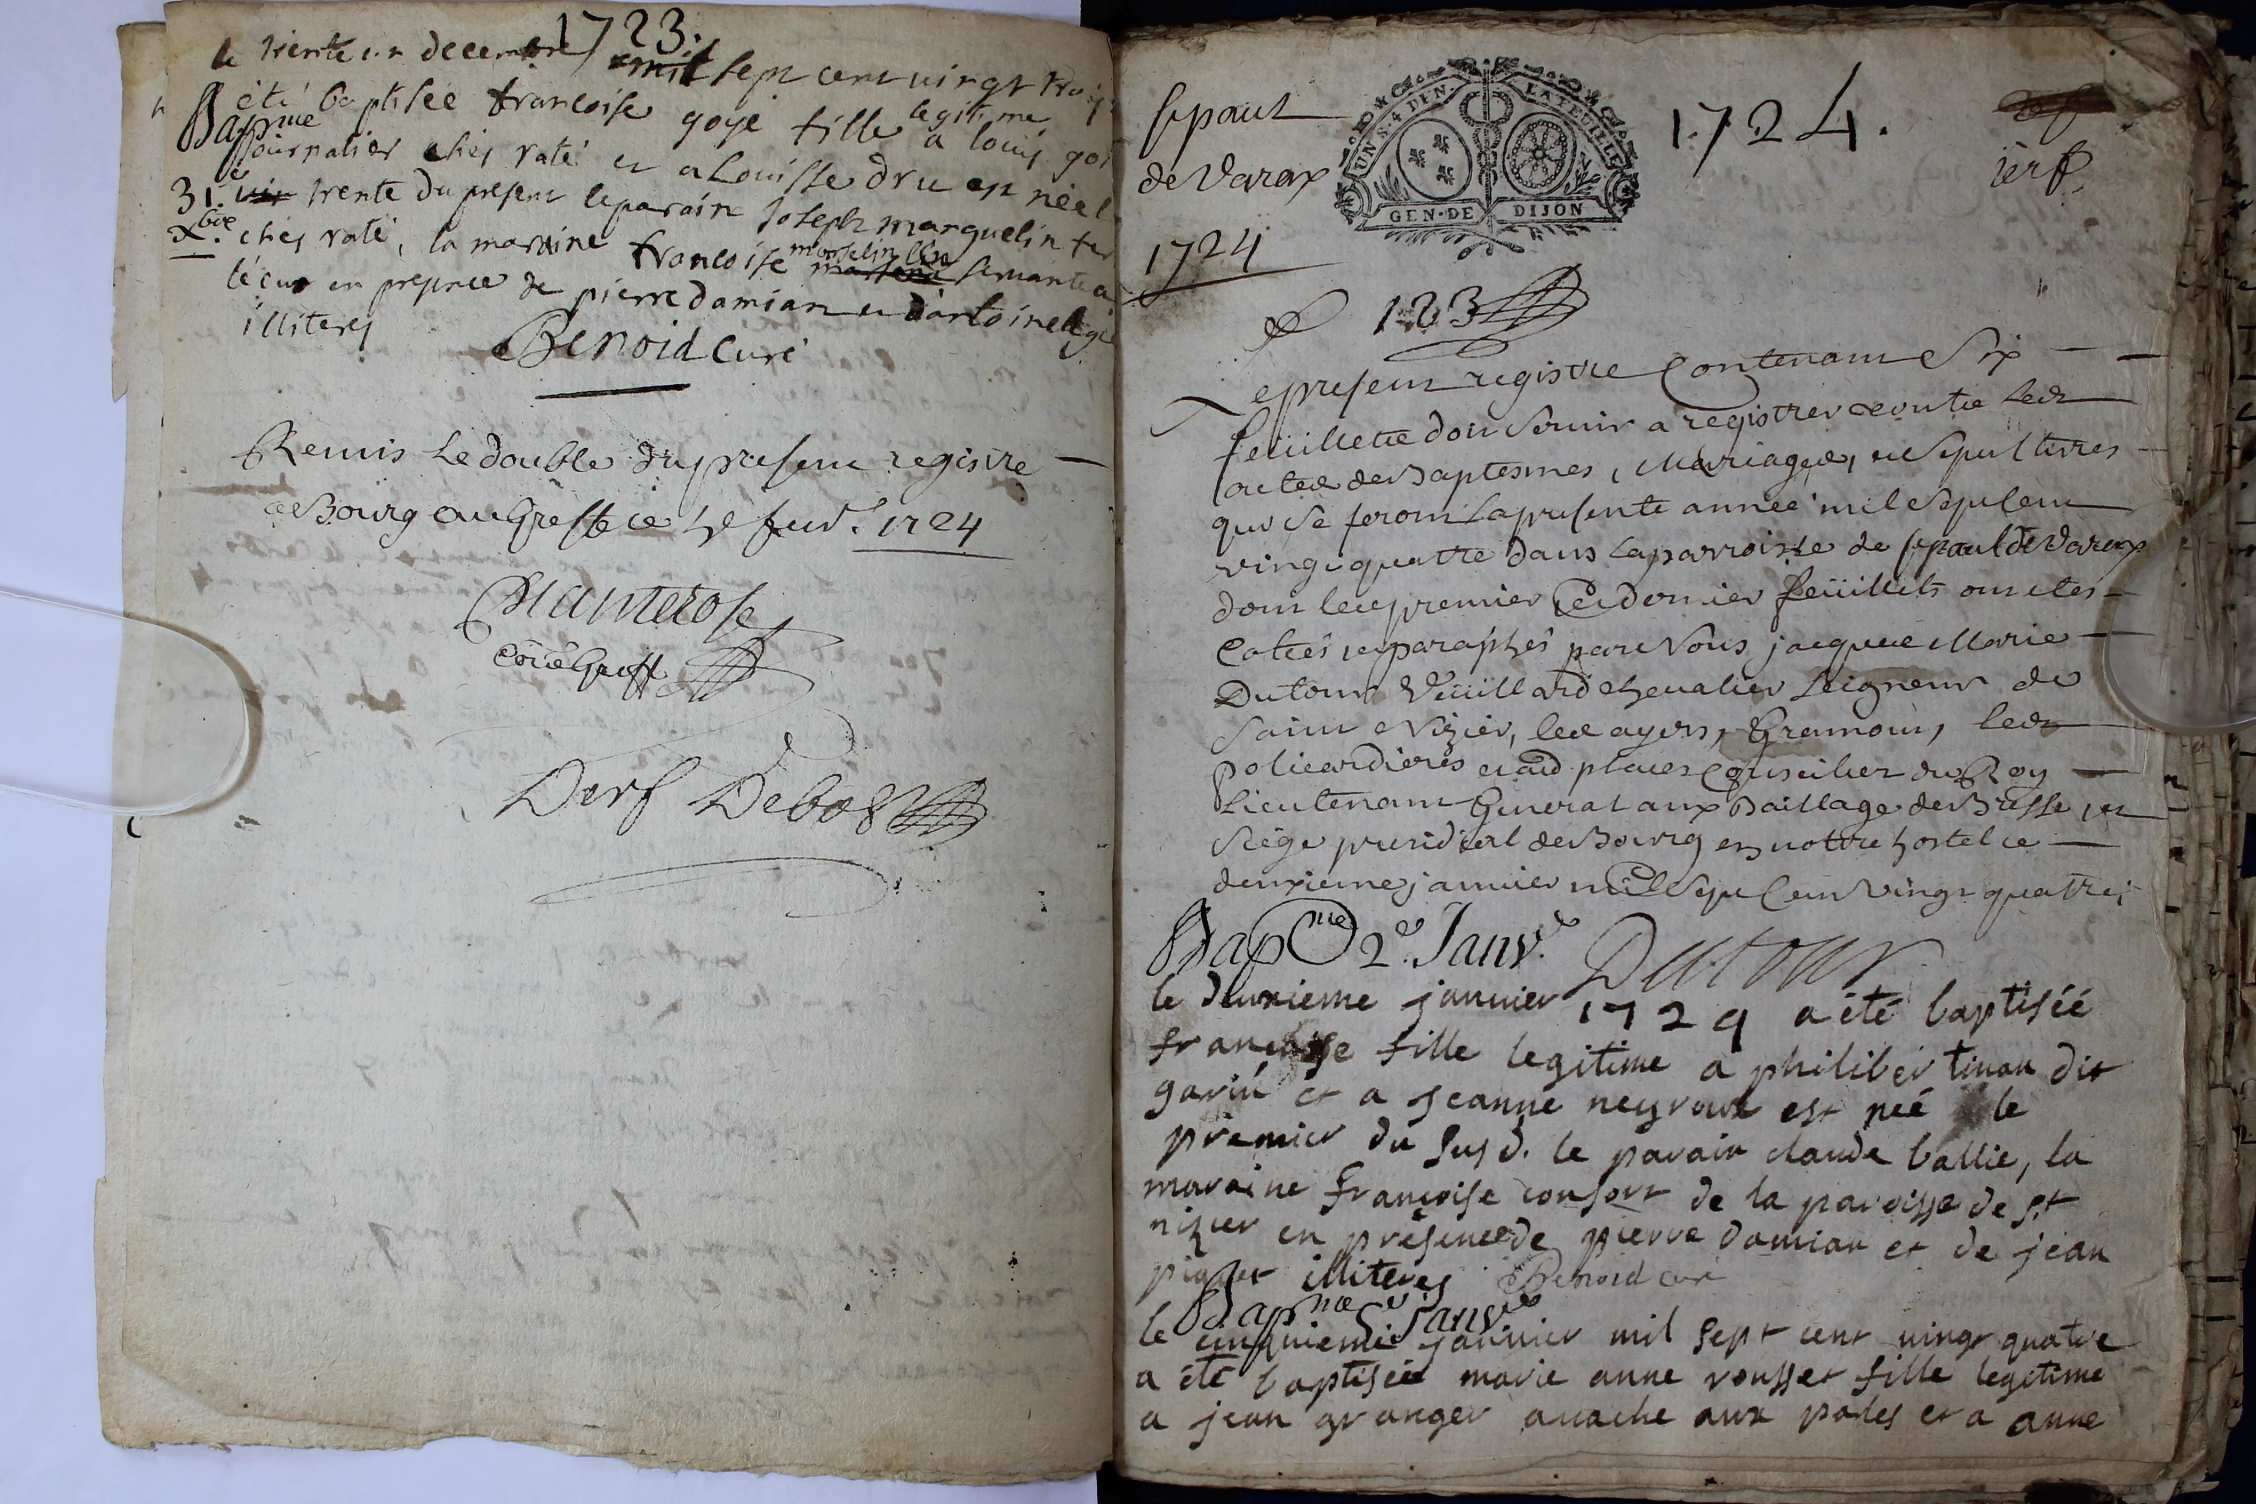 1723.
le trente un decembre mil sept cent vingt trois
été baptisée francoise goye fille legitime
Bapme
journalier ches raté et a Louisse dru est née le
31. trente du present le parain Joseph marguelin
Xbre ches raté, la maraine francoise servante a
le curé en presence de pierre damian et d'antoine
illiteres
Benoid Curé
Remis Le double du present registre
a Bourg au Greffe ce 1724
Chanterose
Derf Debost
st paul
de Varax
1724
UN S. 4 DEN. LA FEUILLE
GEN. DE DIJON
1724.
1er f.
123
Le present registre Contenant Six
feüillette doit servir a registrer ecrire Les
actes des Baptesmes, Mariages, et Sepultures
qui se feront La presente année mil sept Cent
vingt quatre dans La parroisse de st paul de Varax
dont les premier Et dernier feüillets ont etes
Cottés et paraphés par Nous jacques Marie
Dutour Vüillard chevalier seigneur de
Saint Nizier, les ayers, Gramont, les
Policardieres et aud places Conseiller du Roy
Lieutenant General aux Baillage de Bresse et
Siége presidial de Bourg en nottre hostel ce
deuxieme janvier mil Sept Cent vingt quatre,
Bapme 2e. Janv.
Dutour
le deuxieme janvier 1724 a été baptisée
francoisse fille legitime a philiber tinan dit
garin et a jeanne neyroux est neé le
premier du susd. le parain claude ballie, la
maraine francoise consort de la paroisse de st
nizier en présence de pierre damian et de jean
piquet illiteres Benoid curé
Bapme 5e Janvr
le cinquieme janvier mil sept cent vingt quatre
a été baptisée marie anne rousset fille legitime
a jean granger a la che aux pales et a anne